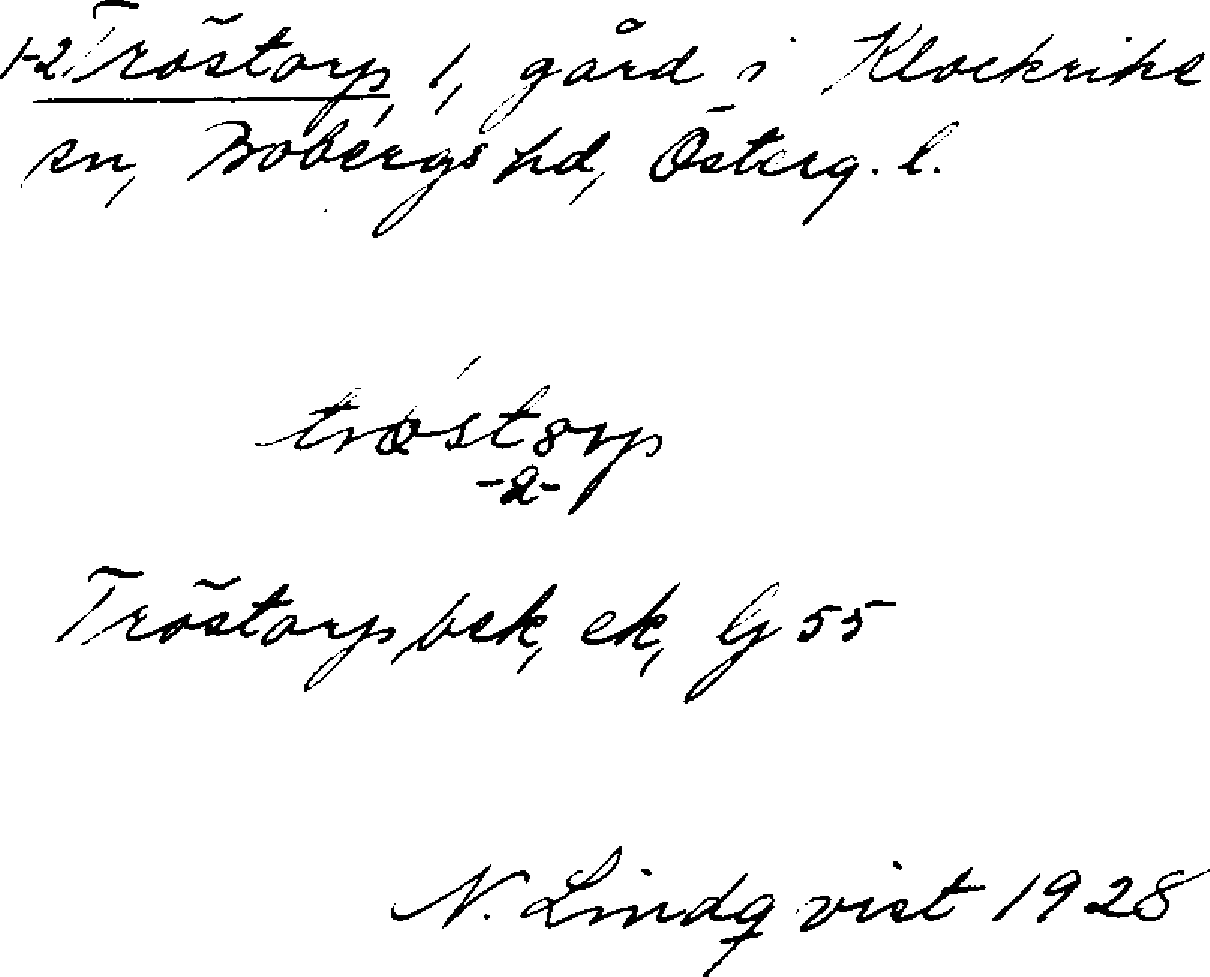 1-2 Tröstorp, 1, gård i Klockrike
sn, Bobergs hd, Österg. l.
trøstorp
-2-
Tröstorp, bek, ek, Gj 55
N. Lindqvist 1928